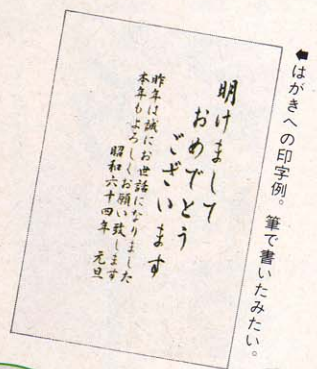 はがきへの印字例。筆で書いたみたい。
明けまして
おめでとう
ございます
昨年は誠にお世話になりました
本年もよろしくお願い致します
昭和六十四年 元旦